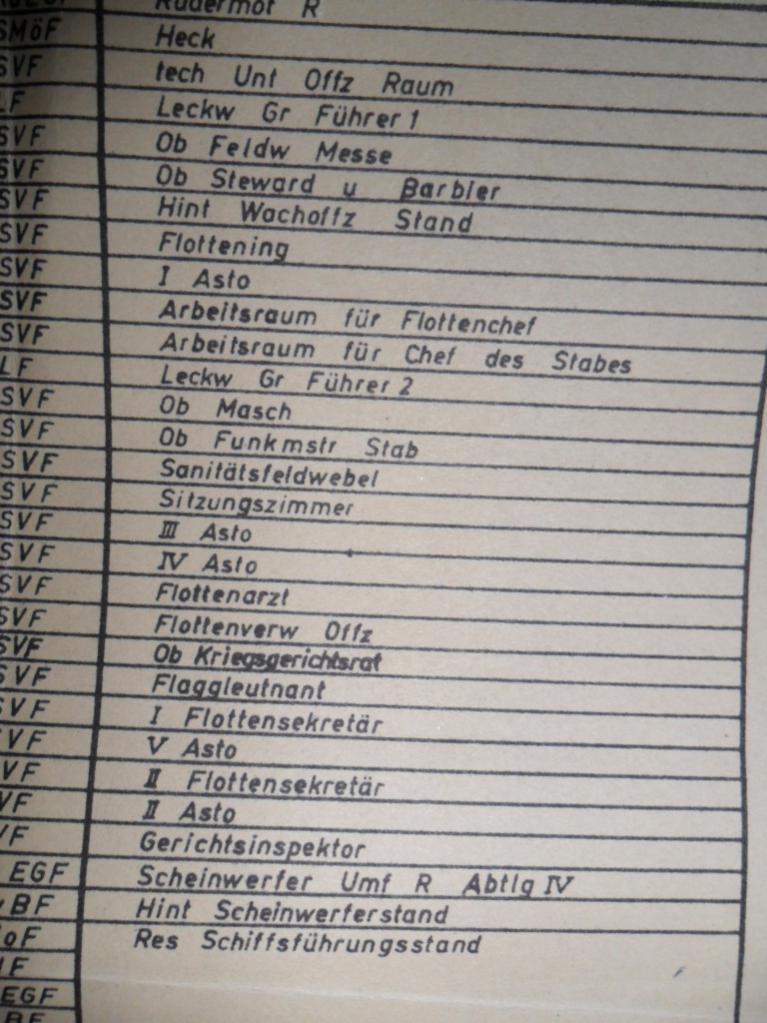 Rudermot R
SMöF Heck
SVF tech Unt Offz Raum
LF Leckw Gr Führer 1
SVF Ob Feldw Messe
SVF Ob Steward u Barbier
SVF Hint Wachoffz Stand
SVF Flottening
SVF I Asto
SVF Arbeitsraum für Flottenchef
SVF Arbeitsraum für Chef des Stabes
LF Leckw Gr Führer 2
SVF Ob Masch
SVF Ob Funkmstr Stab
SVF Sanitätsfeldwebel
SVF Sitzungszimmer
SVF III Asto
SVF IV Asto
SVF Flottenarzt
SVF Flottenverw Offz
SVF Ob Kriegsgerichtsrat
SVF Flaggleutnant
SVF I Flottensekretär
VF V Asto
VF II Flottensekretär
VF II Asto
VF Gerichtsinspektor
EGF Scheinwerfer Umf R Abtlg IV
BF Hint Scheinwerferstand
oF Res Schiffsführungsstand
EGF
BF